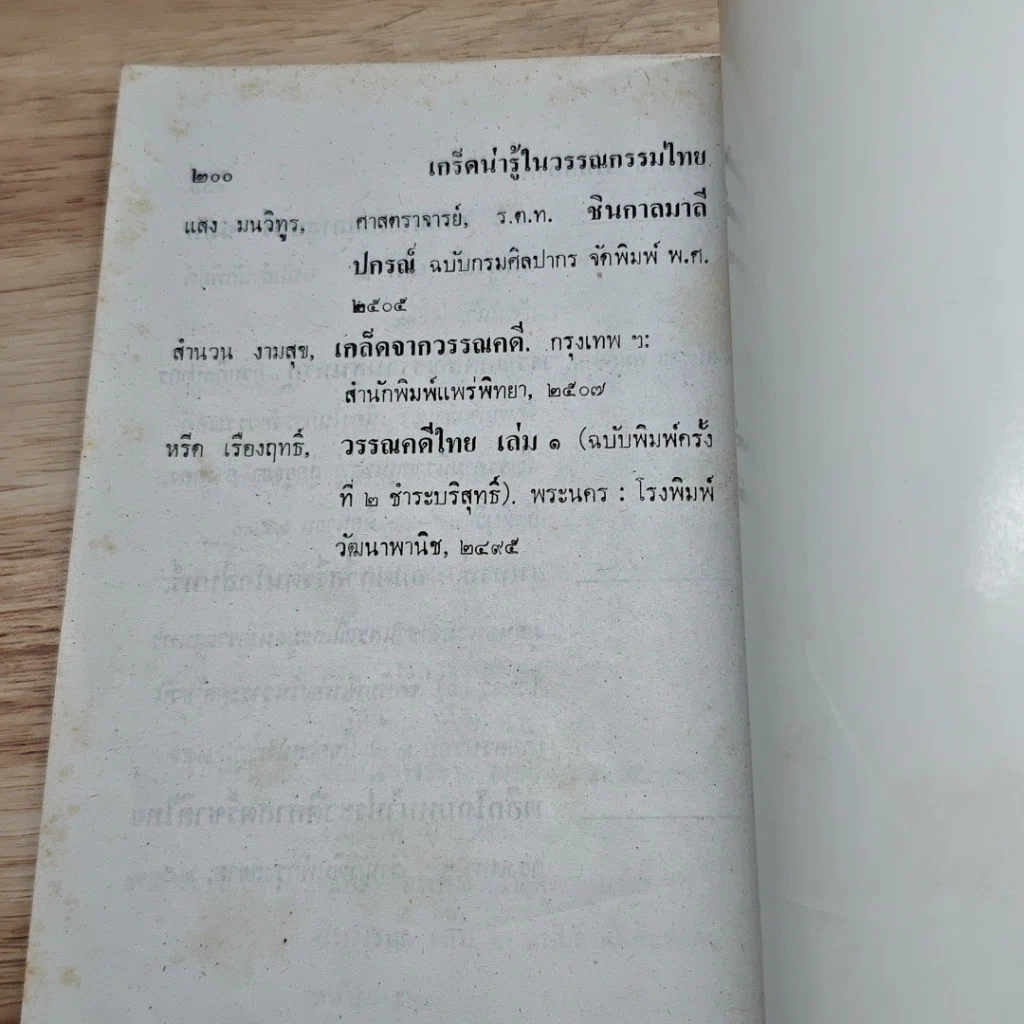 ๒๐๐ เกร็ดน่ารู้ในวรรณกรรมไทย
แสง มนวิทูร, ศาสตราจารย์, ร.ต.ท. ชินกาลมาลี
ปกรณ์ ฉบับกรมศิลปากร จัดพิมพ์ พ.ศ.
๒๕๐๕
สำนวน งามสุข, เคล็ดจากวรรณคดี. กรุงเทพ ฯ:
สำนักพิมพ์แพร่พิทยา, ๒๕๐๗
หรีด เรืองฤทธิ์, วรรณคดีไทย เล่ม ๑ (ฉบับพิมพ์ครั้ง
ที่ ๒ ชำระบริสุทธิ์). พระนคร : โรงพิมพ์
วัฒนาพานิช, ๒๔๙๕